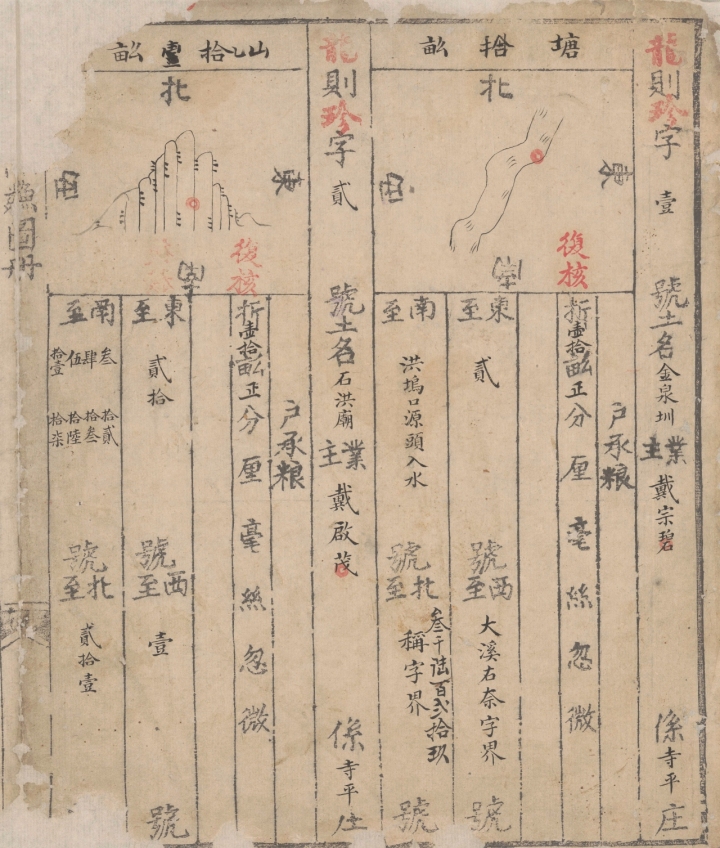 龍則珍字壹號土名金泉圳業主戴宗碧係寺平庄
塘拾畝
北
東
西
南
復核
戶承粮
折壹拾畝正分厘毫絲忽微
東至貳號
西至大溪右奈字界號
南至洪塢口源頭入水號
北至叁千陆百弍拾玖稱字界號
龍則珍字貳號土名石洪廟業主戴啟茂係寺平庄
山乙拾壹畝
北
東
西
南
復核
戶承粮
折壹拾畝正分厘毫絲忽微
東至貳拾號
西至壹號
南至叁肆伍拾壹拾貳拾叁拾陸拾柒號
北至貳拾壹
魚圖册